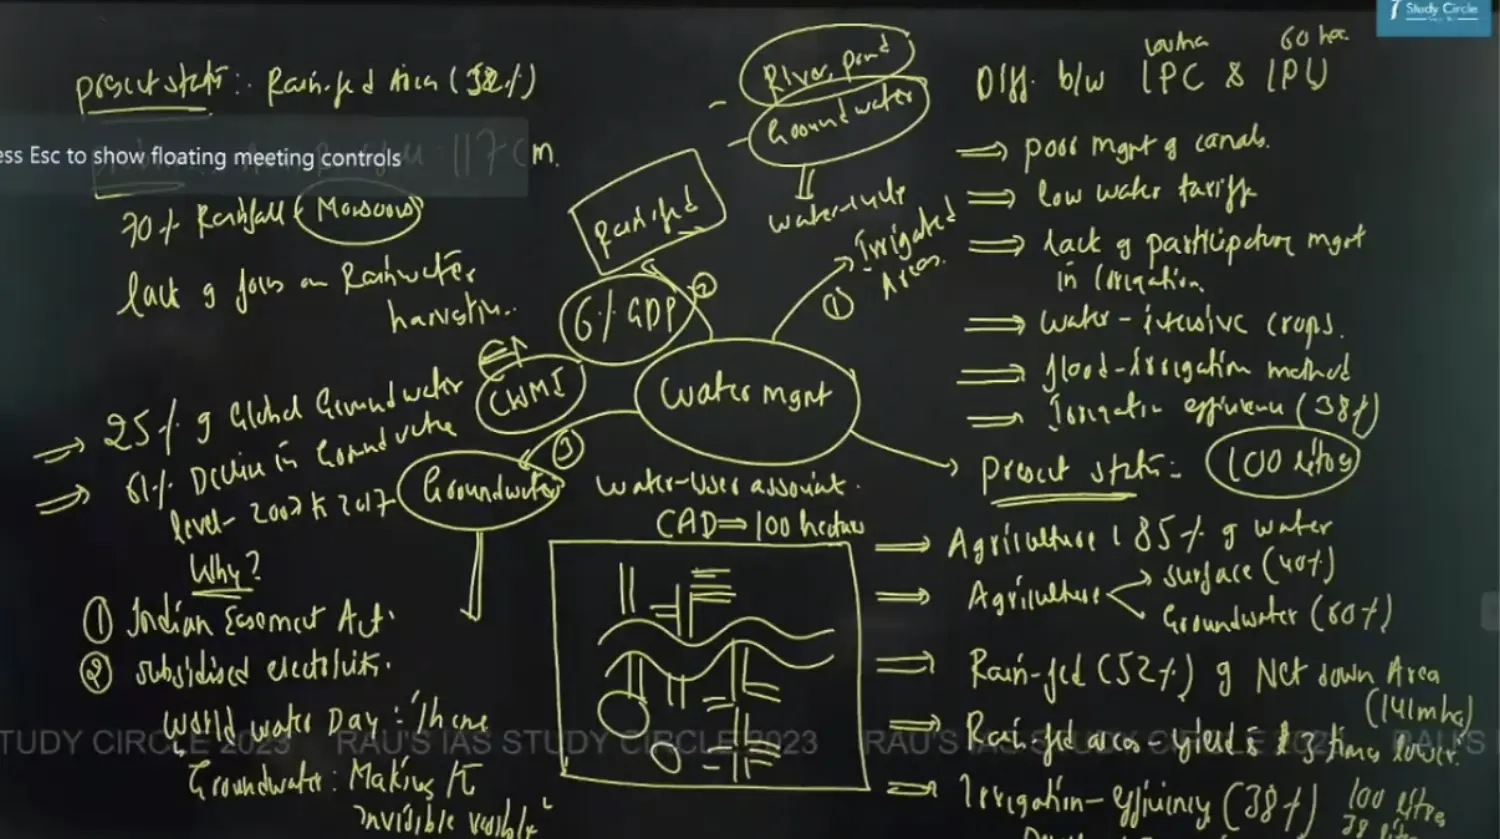 Study Circle
present status: Rain-fed Area (52%)
ess Esc to show floating meeting controls
117 cm.
70% Rainfall (Monsoons)
lack of focus on Rainwater
harvesting..
25% of Global Groundwater
61% Decline in Groundwater
level- 2007 to 2017
Why?
① Indian Easement Act.
② subsidised electricity.
World Water Day: Theme
Groundwater: Making the
invisible visible
River, pond
Groundwater
Water-cycle
Rainfed
②
6% GDP
CWMI
① Irrigated
Areas.
Water mgnt
③
Groundwater
Water-User associat.
CAD ⇒ 100 hectares
60 hec.
Diff. b/w IPC & IPU
⇒ poor mgnt of canals.
⇒ low water tariffs
⇒ lack of participatory mgnt
in Irrigation.
⇒ Water-intensive crops.
⇒ flood-Irrigation method
⇒ Irrigation efficiency (38%)
present status:- 100 litres
⇒ Agriculture 85% of water
⇒ Agriculture
surface (40%)
Groundwater (60%)
⇒ Rain-fed (52%) of Net sown Area
(141mha)
⇒ Rain-fed areas - yield is 3 times lower.
⇒ Irrigation-efficiency (38%) 100 litres
TUDY CIRCLE 2023 RAU'S IAS STUDY CIRCLE 2023 RAU'S IAS STUDY CIRCLE 202 RAU'S